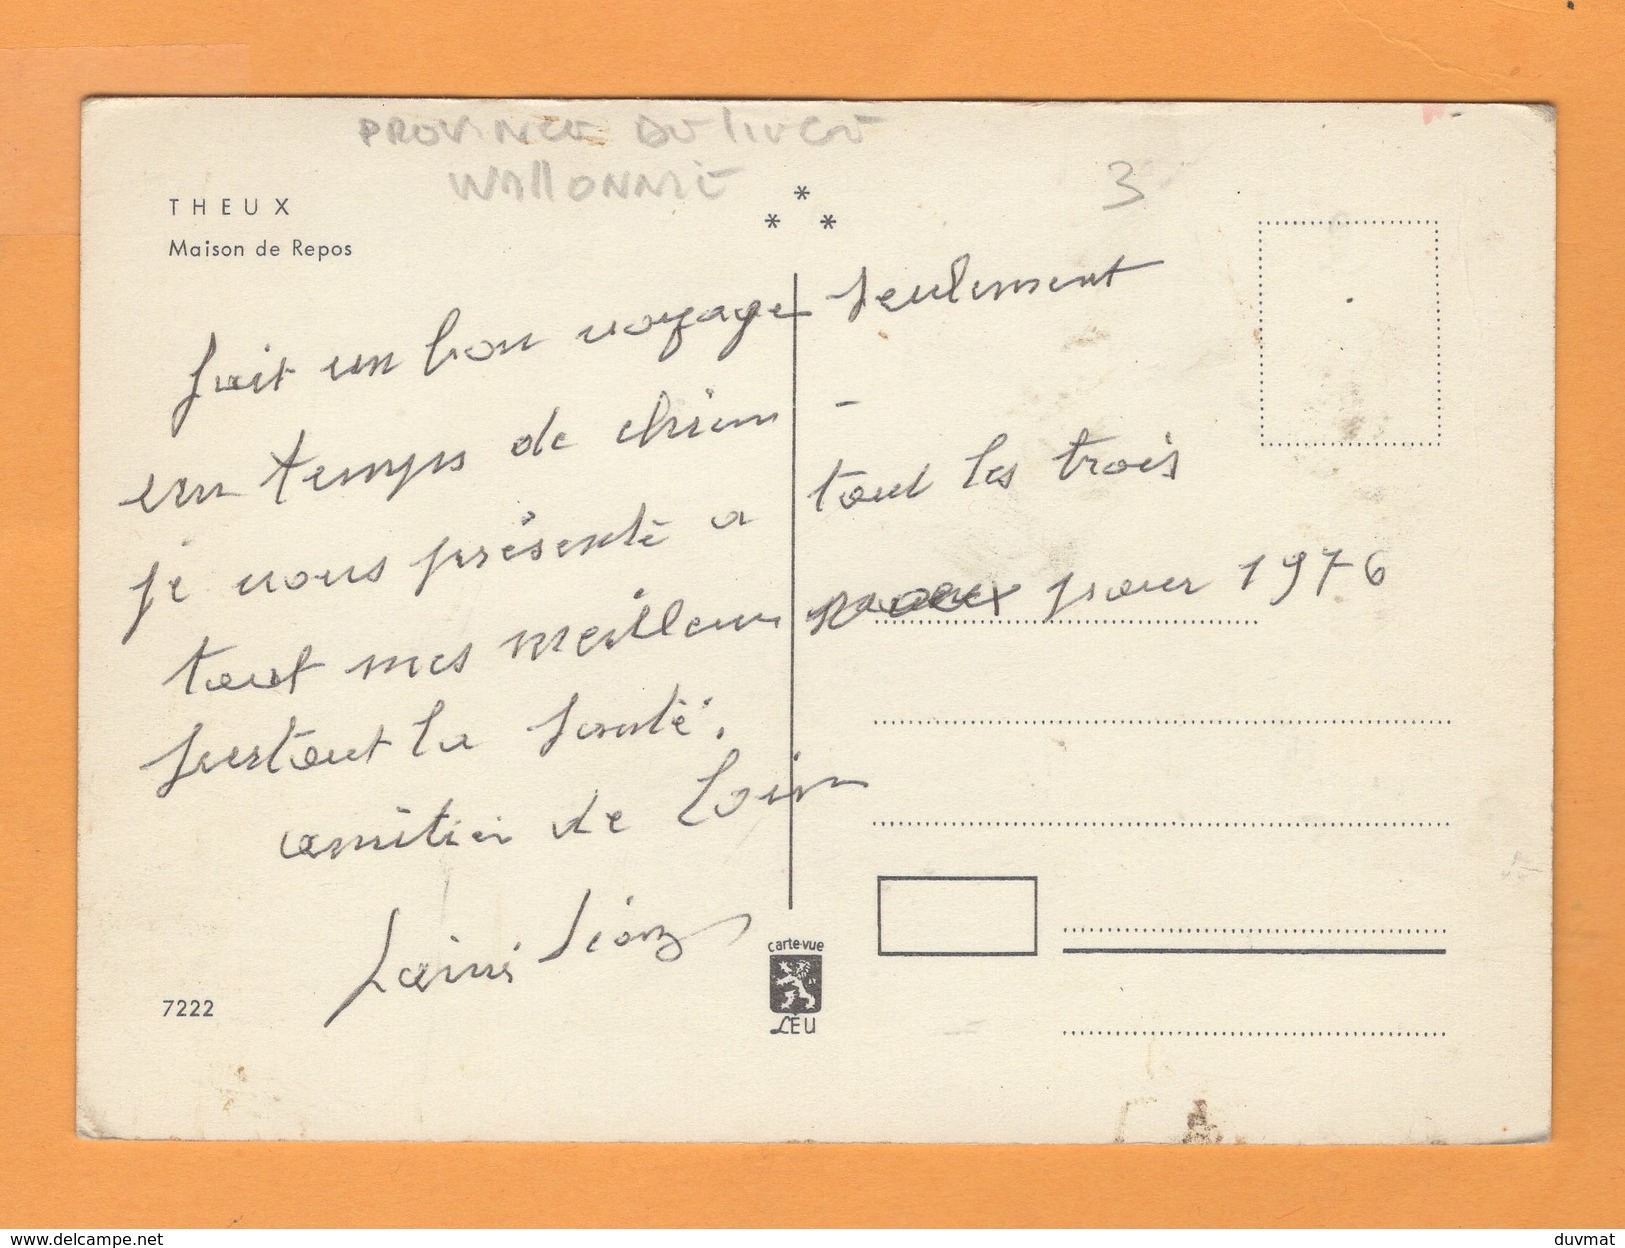 PROVINCE DE
WALLONNIE
3
THEUX
Maison de Repos
* * *
fait un bon voyage seulement
un temps de chien -
je vous présente a tout les trois
tout mes meilleur voeux pour 1976
surtout la santé.
amitier de Loin
7222
carte-vue
LEU
www.delcampe.net
duvmat